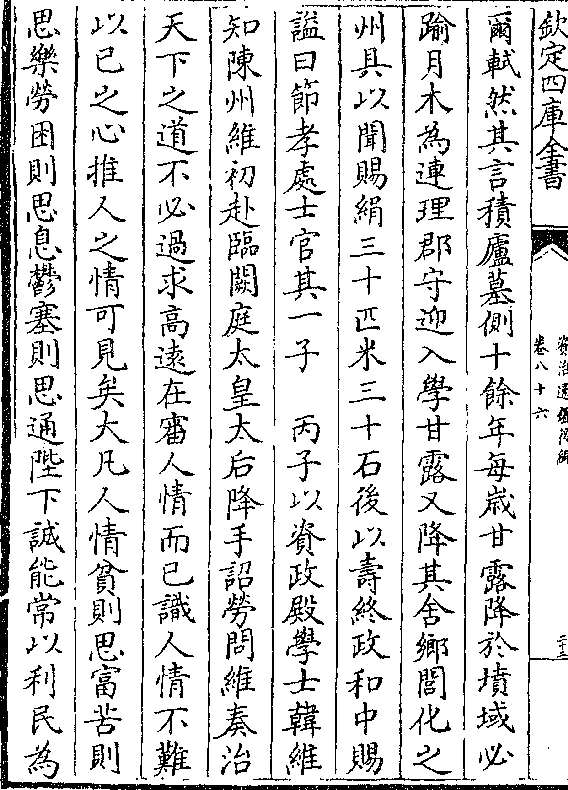 欽定四庫全書
資治通鑑後編
卷八十六
二十三
爾軾然其言積廬墓側十餘年每歳甘露降於墳域必
踰月木為連理郡守迎入學甘露又降其舍鄉閭化之
州具以聞賜絹三十匹米三十石後以壽終政和中賜
諡曰節孝處士官其一子　丙子以資政殿學士韓維
知陳州維初赴臨闕庭太皇太后降手詔勞問維奏治
天下之道不必過求高逺在審人情而已識人情不難
以已之心推人之情可見矣大凡人情貧則思富苦則
思樂勞困則思息鬱塞則思通陛下誠能常以利民為